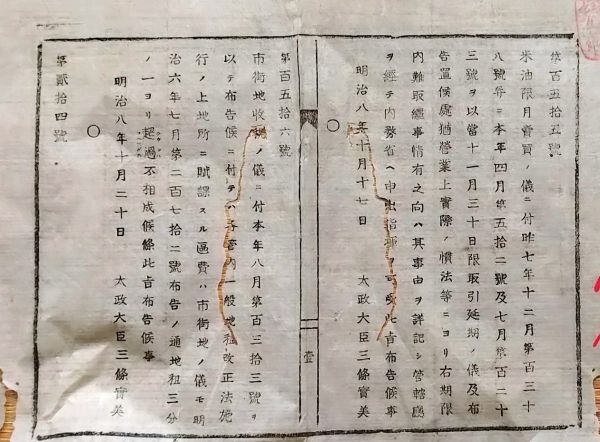 第百五拾五號
米油限月賣買ノ儀ニ付昨七年十二月第百三十
八號竝ニ本年四月第五拾二號及七月第百二十
三號ヲ以當十一月三十日限取引延期ノ儀及布
告置候處猶營業上實際ノ慣法等ニヨリ右期限
内難取纒事情有之向ハ其事由ヲ詳記シ管轄廳
ヲ經テ内務省ヘ申出指揮ヲ可受此旨布告候事
明治八年十月十七日 太政大臣三條實美
○
第百五拾六號
市街地收税ノ儀ニ付本年八月第百三拾三號ヲ
以テ布告候ニ付テハ管内一般地租改正法施
行ノ上地所ニ賦課スル區費ハ市街地ノ儀モ明
治六年七月第二百七拾二號布告ノ通地租三分
ノ一ヨリ超過不相成候條此旨布告候事
明治八年十月二十日 太政大臣三條實美
○
第貳拾四號
壹